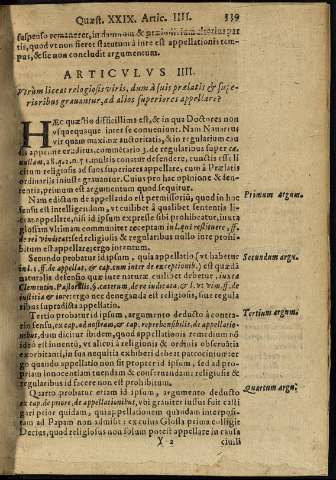 Quæst. XXIX. Artic. IIII. 339
suspenso remaneret, in damnum & præiudicium alterius par
tis, quod vt non fieret statutum à iure est appellationis tem-
pus, & sic non concludit argumentum.
ARTICVLVS IIII.
Vtrum liceat religiosis viris, dum à suis prælatis & supe-
rioribus grauantur, ad alios superiores appellare?
HÆC quæstio difficillima est, & in qua Doctores non
vsquequaque inter se conueniunt. Nam Nauarrus
vir quam maximæ auctoritatis, & in regularium cau
sis apprimè eruditus, commentario 3. de regularibus super ca.
nullam, 18. q. 2. multis conatur defendere, cunctis esse li
citum religiosis ad suos superiores appellare, cum à Prælatis
ordinarijs iniustè grauantur. Cuius pro hac opinione & sen-
tentia, primum est argumentum quod sequitur.
Nam edictum de appellando est permissoriũ, quod in hoc
sensu est intelligendum, vt cuilibet à qualibet sententia li-
ceat appellare, nisi id ipsum expresse sibi prohibeatur, iuxta
glossam vltimam communiter receptam in l. qui restituere, ff.
de rei vindicat. sed religiosis & regularibus nullo iure prohi-
bitum est appellare; ergo intentum.
Primum argum.
Secundo probatur id ipsum, quia appellatio (vt habetur
in l. 1. ff. de appellat. & cap. cum inter de exceptionib.) est quædã
naturalis defensio quæ iure naturæ cuilibet debetur, iuxta
Clementin. Pastoralis, §. cæterum, de re iudicata, & l. vt vim, ff. de
iustitia & iure: ergo nec deneganda est religiosis, siue regula
ribus supradicta appellatio.
Secundum argu.
Tertio probatur id ipsum, argumento deducto à contra-
rio sensu, ex cap. ad nostram, & cap. reprehensibilis, de appellatio-
nibus, dum dicitur ibidem, quod appellationis remedium nõ
ideo est inuentũ, vt alicui à religionis & ordinis obseruãtia
exorbitanti, in sua nequitia exhiberi debeat patrocinium: er
go quando appellatio non fit propter id ipsum, sed ad pro-
priam innocentiam tuendam & conseruandam: religiosis &
regularibus id facere non est prohibitum.
Tertium argum.
Quarto probatur etiam id ipsum, argumento deducto
ex cap. de priore, de appellationibus, vbi grauiter iussus fuit casti
gari prior quidam, quia appellationem quandam interposi-
tam ad Papam non admisit: ex cuius Glossa primo colligit
Decius, quod religiosus non solum potest appellare in causa
Quartum argu.
X 2 ciuili